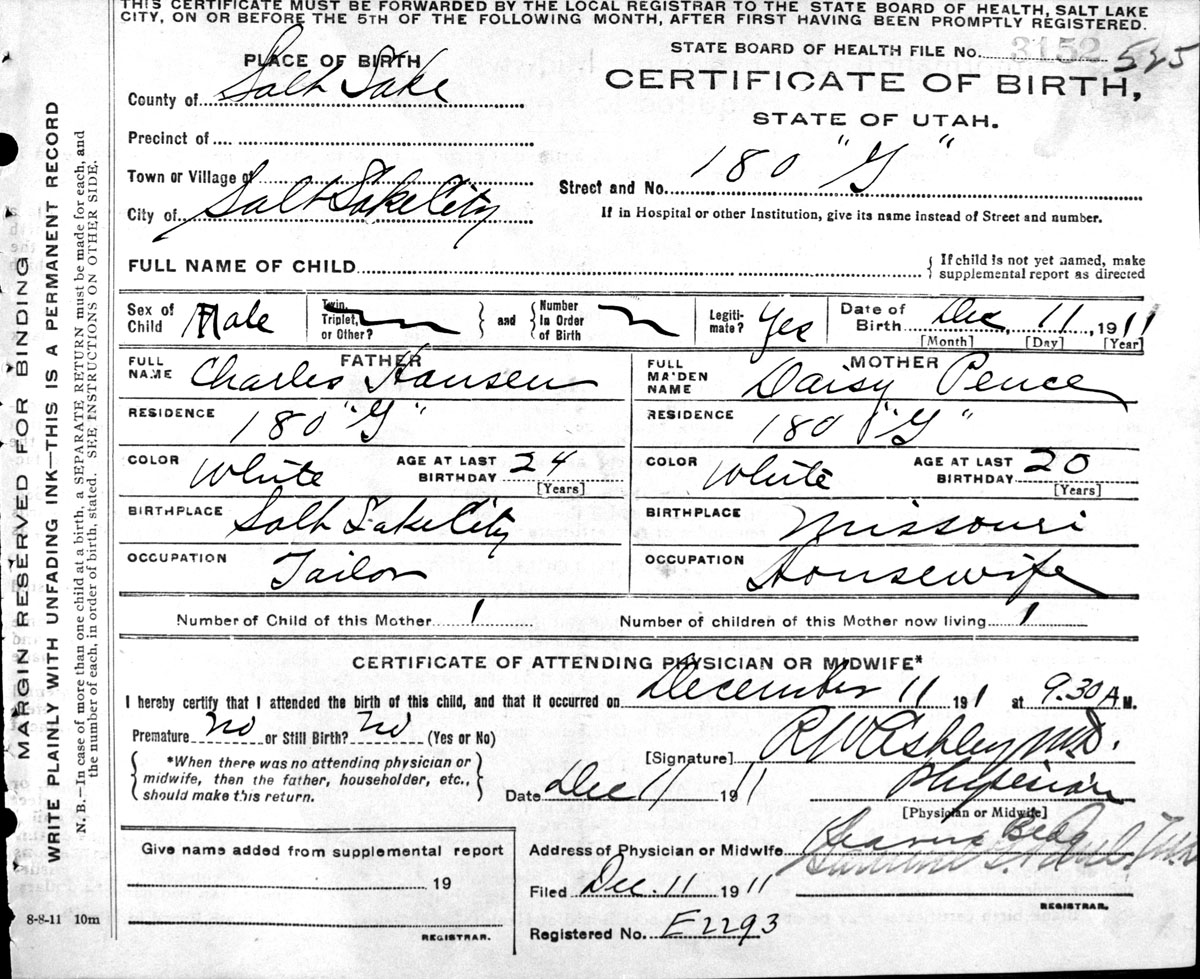 THIS CERTIFICATE MUST BE FORWARDED BY THE LOCAL REGISTRAR TO THE STATE BOARD OF HEALTH, SALT LAKE
CITY, ON OR BEFORE THE 5TH OF THE FOLLOWING MONTH, AFTER FIRST HAVING BEEN PROMPTLY REGISTERED.
MARGIN RESERVED FOR BINDING
WRITE PLAINLY WITH UNFADING INK—THIS IS A PERMANENT RECORD
N. B.—In case of more than one child at a birth, a SEPARATE RETURN must be made for each, and
the number of each, in order of birth, stated. SEE INSTRUCTIONS ON OTHER SIDE.
STATE BOARD OF HEALTH FILE No. 3152 525
PLACE OF BIRTH
CERTIFICATE OF BIRTH,
County of Salt Lake
STATE OF UTAH.
Precinct of
Town or Village of
Street and No. 180 "G"
City of Salt Lake City
If in Hospital or other Institution, give its name instead of Street and number.
FULL NAME OF CHILD
{ If child is not yet named, make
supplemental report as directed
Sex of Child Male
Twin, Triplet, or Other? } and { Number In Order of Birth
Legiti-mate? Yes
Date of Birth Dec, 11, 1911
[Month] [Day] [Year]
FATHER
FULL NAME Charles Hansen
MOTHER
FULL MAIDEN NAME Daisy Pence
RESIDENCE 180 "G"
RESIDENCE 180 "G"
COLOR White AGE AT LAST BIRTHDAY 24 [Years]
COLOR White AGE AT LAST BIRTHDAY 20 [Years]
BIRTHPLACE Salt Lake City
BIRTHPLACE Missouri
OCCUPATION Tailor
OCCUPATION Housewife
Number of Child of this Mother 1 Number of children of this Mother now living 1
CERTIFICATE OF ATTENDING PHYSICIAN OR MIDWIFE*
I hereby certify that I attended the birth of this child, and that it occurred on December 11 191 1 at 9.30 A M.
Premature no or Still Birth? no (Yes or No)
[Signature] R W Ashley M.D.
{ *When there was no attending physician or
midwife, then the father, householder, etc.,
should make this return. }
Date Dec 11 1911
Physician
[Physician or Midwife]
Give name added from supplemental report
19
REGISTRAR.
Address of Physician or Midwife
Filed Dec. 11 1911
REGISTRAR.
Registered No. E2293
8-8-11 10m